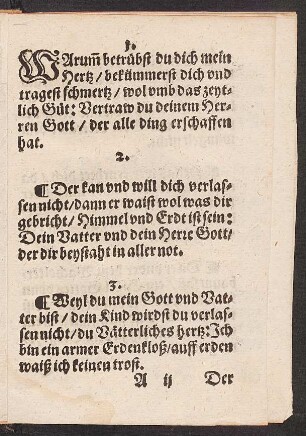 1.
WArum̃ betrübst du dich mein
Hertz / bekümmerst dich vnd
tragest schmertz / wol vmb das zeyt-
lich Gůt: Vertraw du deinem Her-
ren Gott / der alle ding erschaffen
hat.
2.
¶ Der kan vnd will dich verlas-
sen nicht / dann er waist wol was dir
gebricht / Himmel vnd Erdt ist sein:
Dein Vatter vnd dein Herre Gott /
der dir beystaht in aller not.
3.
¶ Weyl du mein Gott vnd Vat-
ter bist / dein Kind wirdst du verlas-
sen nicht / du Vätterliches hertz: Ich
bin ein armer Erdenkloß / auff erden
waiß ich keinen trost.
A ij Der